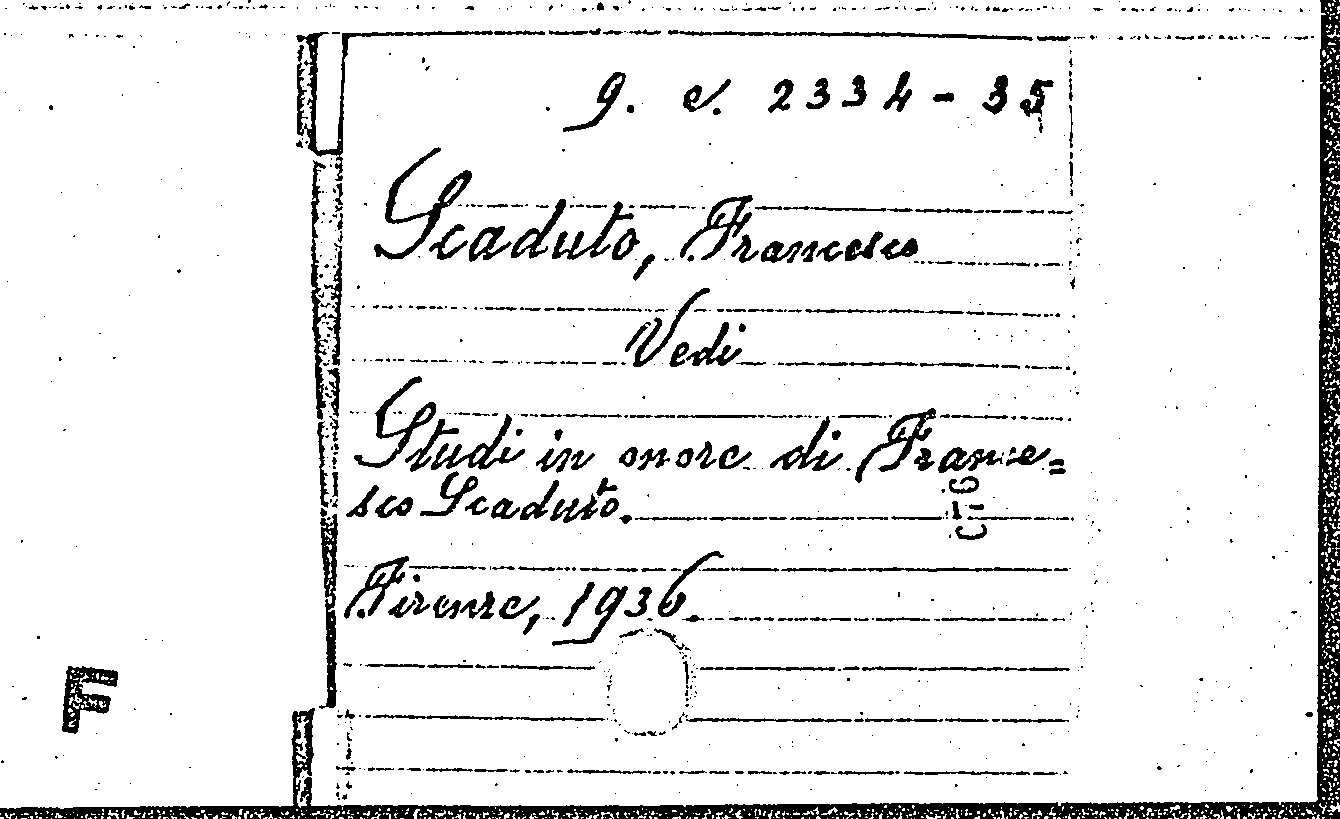 g. c. 2334-35
Scaduto, Francesco
Vedi
Studi in onore di France=
sco Scaduto.
Firenze, 1936.
F